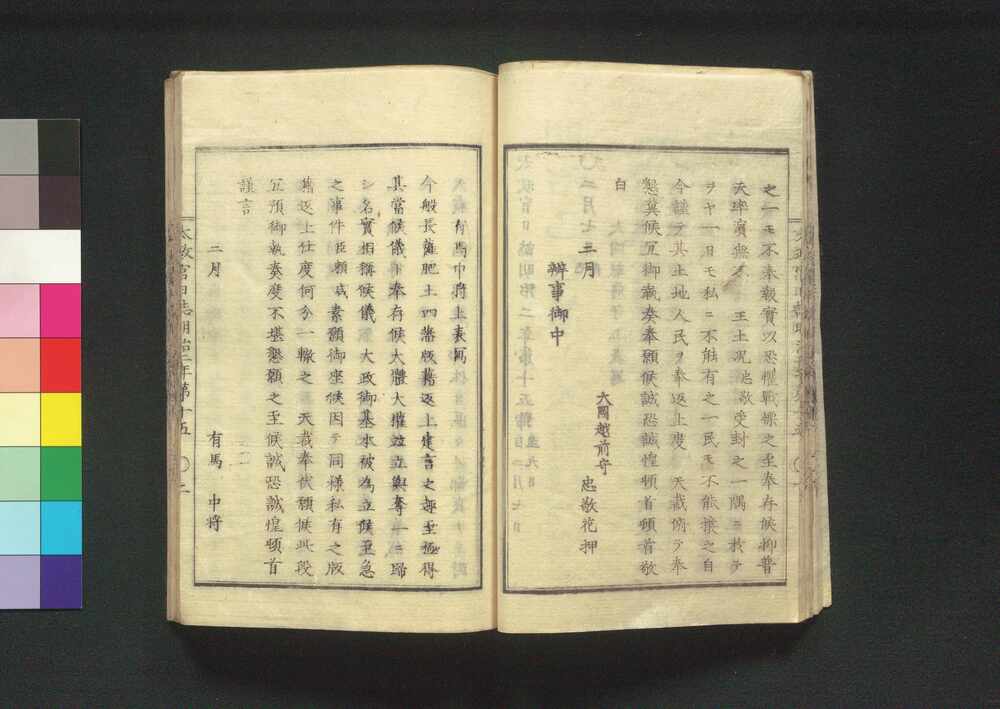 之一モ不奉報實以恐懼戰慄之至奉存候抑普
天率濱無不 王土況忠敬受封之一隅ニ於テ
ヲヤ一日モ私ニ不能有之一民モ不能擅之自
今謹テ其土地人民ヲ奉返上度 天裁備テ奉
懇冀候冝御執奏奉願候誠恐誠惶頓首頓首敬
白
二月
大岡越前守 忠敬花押
辨事御中
有馬中將上表寫
今般長薩肥土四藩版籍返上建言之趣至極得
其當候儀ト奉存候大體大權並立與奪一ニ歸
シ名實相搆候儀 大政御基本被為立候至急
之事件臣頼咸素願御座候因テ同樣私有之版
籍返上仕度何分一轍之 天裁奉伏願候此段
冝預御執奏度不堪懇願之至候誠恐誠惶頓首
謹言
二月
有馬 中將
太政官日誌明治二年第十五 〇二